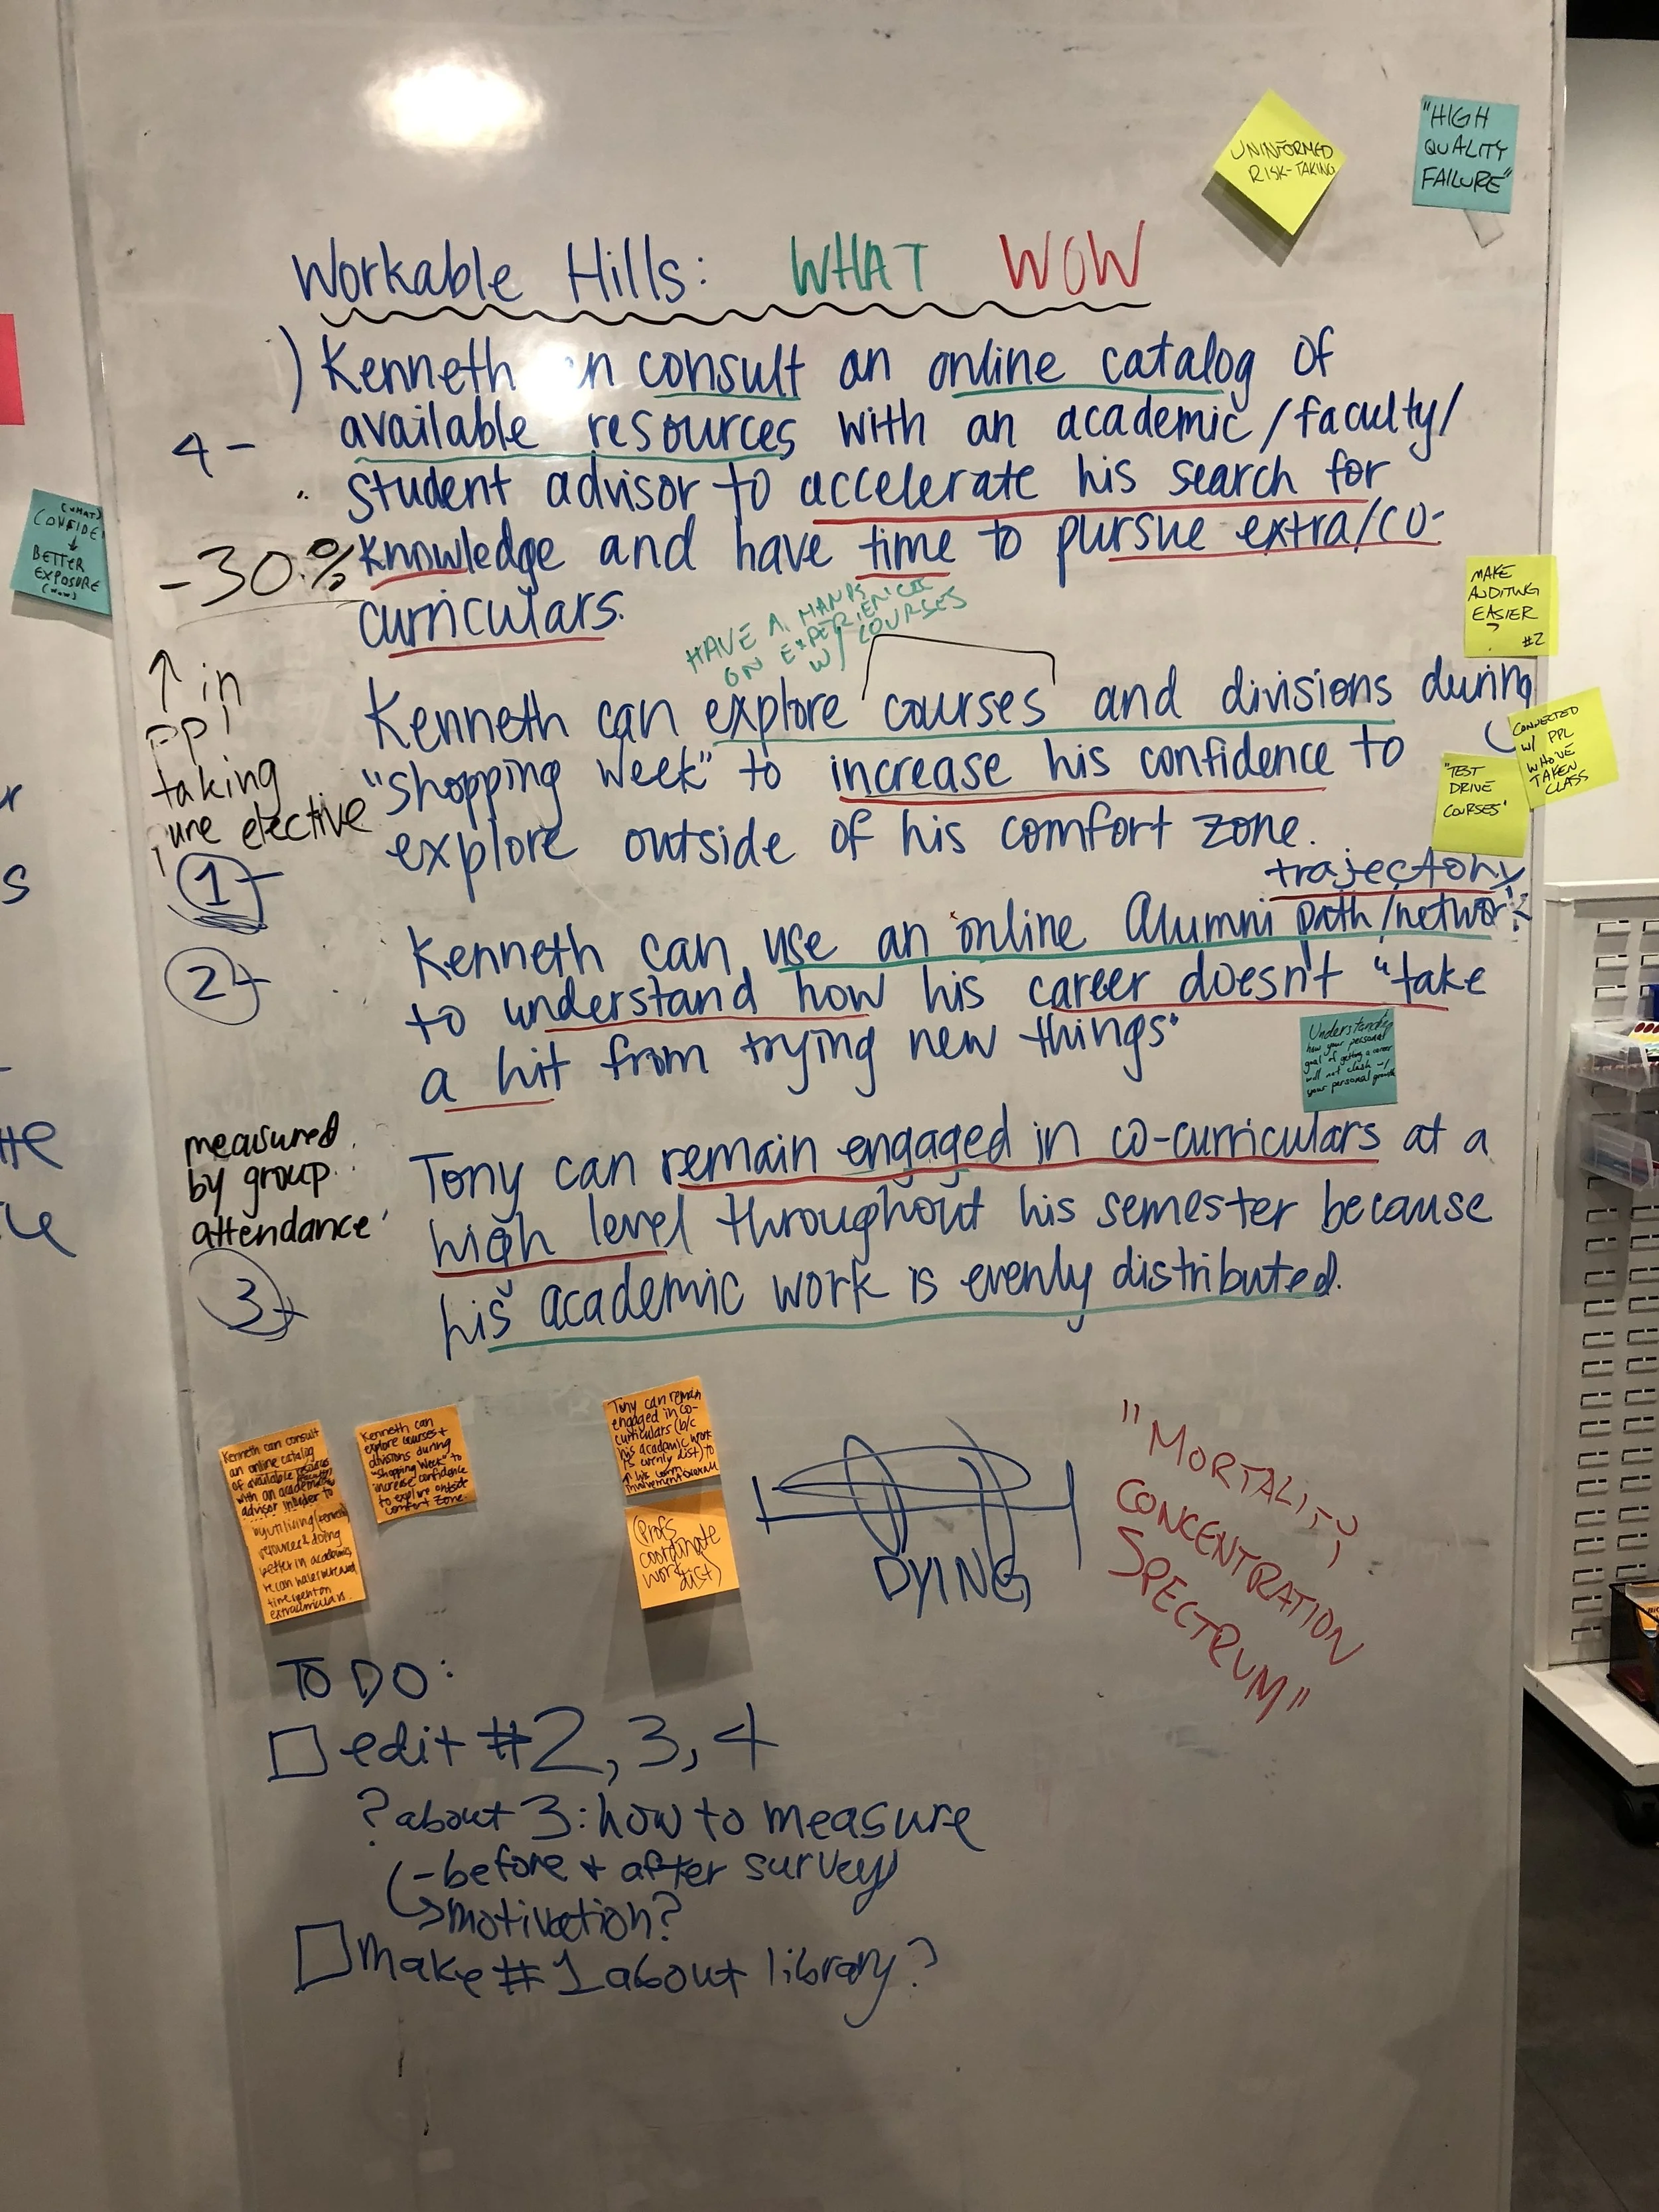 UNINFORMED
RISK-TAKING
"HIGH
QUALITY
FAILURE"
Workable Hills: WHAT WOW
) Kenneth consult an online catalog of
4 - available resources with an academic/faculty/
student advisor to accelerate his search for
-30% knowledge and have time to pursue extra/co-
curriculars.
(WHAT)
BETTER
EXPOSURE
(WOW)
HAVE A HANDS
ON EXPERIENCE
W/ COURSES
MAKE
AUDITING
EASIER
?
#2
↑ in
ppl
taking
elective
Kenneth can explore courses and divisions during
"shopping week" to increase his confidence to
explore outside of his comfort zone.
1
CONNECTED
W/ PPL
WHO'VE
TAKEN
CLASS
"TEST
DRIVE
COURSES"
trajectory
2 Kenneth can use an online Alumni path/network
to understand how his career doesn't "take
a hit from trying new things"
Understanding
how your personal
goal of getting a career
will not clash w/
your personal growth
measured
by group
attendance
3
Tony can remain engaged in co-curriculars at a
high level throughout his semester because
his academic work is evenly distributed.
Kenneth can consult
an online catalog
of available resources
with an academic
advisor in order to
by utilizing
resources & doing
better in academics
he can have increased
time spent on
extracurriculars.
Kenneth can
explore courses +
divisions during
"Shopping Week" to
increase confidence
to explore outside
comfort zone
Tony can remain
engaged in co-
curriculars (b/c
his academic work
is evenly dist) to
↑ his comm
involvement overall
(Profs
coordinate
work
dist)
DYING
"MORTALITY
CONCENTRATION
SPECTRUM"
TO DO:
edit #2, 3, 4
? about 3: how to measure
- before + after survey
motivation?
make #1 about library?